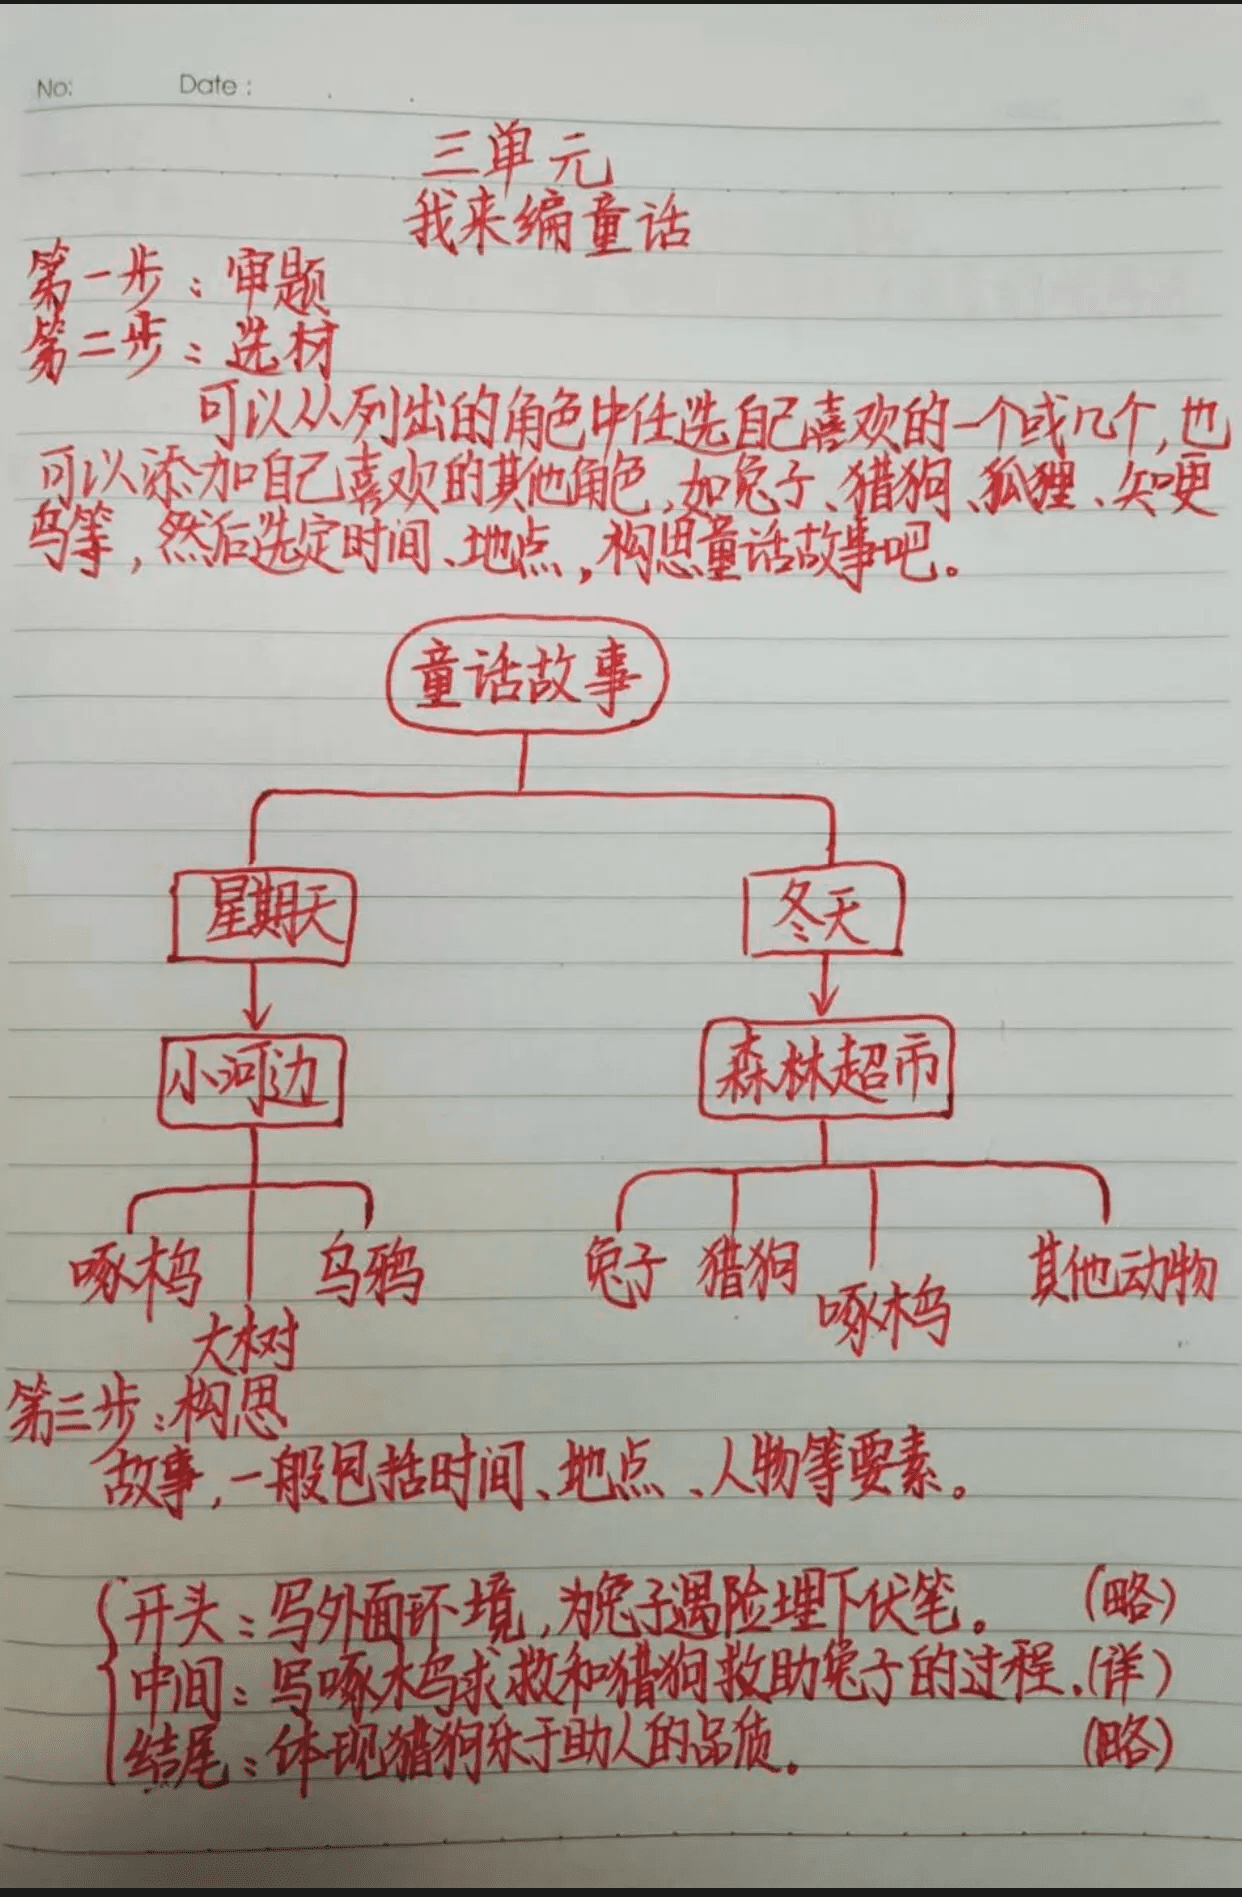 No: Date:
三单元
我来编童话
第一步：审题
第二步：选材
可以从列出的角色中任选自己喜欢的一个或几个，也
可以添加自己喜欢的其他角色，如兔子、猎狗、狐狸、知更
鸟等，然后选定时间、地点，构思童话故事吧。
童话故事
星期天 冬天
小河边 森林超市
啄木鸟 乌鸦 兔子 猎狗 其他动物
大树 啄木鸟
第三步：构思
故事，一般包括时间、地点、人物等要素。
开头：写外面环境，为兔子遇险埋下伏笔。（略）
中间：写啄木鸟求救和猎狗救助兔子的过程.（详）
结尾：体现猎狗乐于助人的品质。（略）